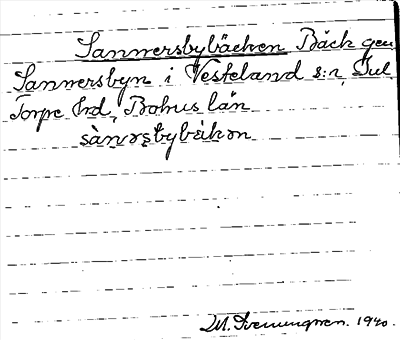 Sannersbybäcken Bäck gen
Sannersbyn i Vesteland s:n, Sul
Torpe hd, Bohus län
sànərs̩bybékən
M. Svenungsson. 1940.